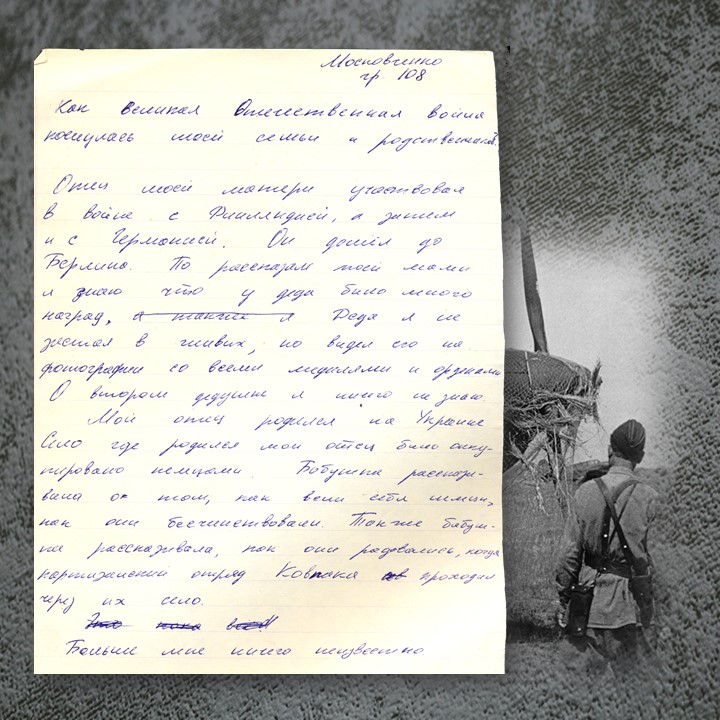 Московченко
гр. 108
Как Великая Отечественная война
коснулась моей семьи и родственников.
Отец моей матери участвовал
в войне с Финляндией, а затем
и с Германией. Он дошёл до
Берлина. По рассказам моей мамы
я знаю что у деда было много
наград, а также я Деда я не
застал в живых, но видел его на
фотографии со всеми медалями и орденами
О втором дедушке я ничего не знаю.
Мой отец родился на Украине
Село где родился мой отец было окку-
пировано немцами. Бабушка рассказы-
вала о том, как вели себя немцы,
как они бесчинствовали. Также бабуш-
ка рассказывала, как они радовались, когда
партизанский отряд Ковпака проходил
через их село.
Это пока всё!
Больше мне ничего неизвестно